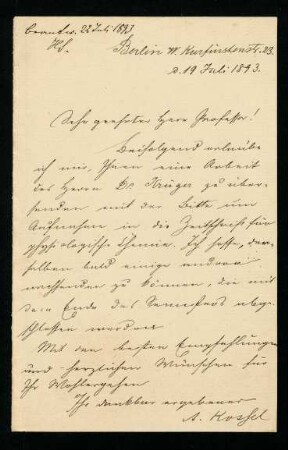 beantw. 22 Juli 1893
HS.
Berlin W. Kurfürstenstr. 23.
d. 19 Juli 1893.
Sehr geehrter Herr Professor!
Beifolgend erlaube
ich mir, Ihnen eine Arbeit
des Herrn Dr Krüger zu über-
senden mit der Bitte um
Aufnahme in die Zeitschrift für
physiologische Chemie. Ich hoffe, der-
selben bald einige andere
nachsenden zu können, die mit
dem Ende des Semesters abge-
schlossen werden.
Mit den besten Empfehlungen
und herzlichen Wünschen für
Ihr Wohlergehen
Ihr dankbar ergebener
A. Kossel